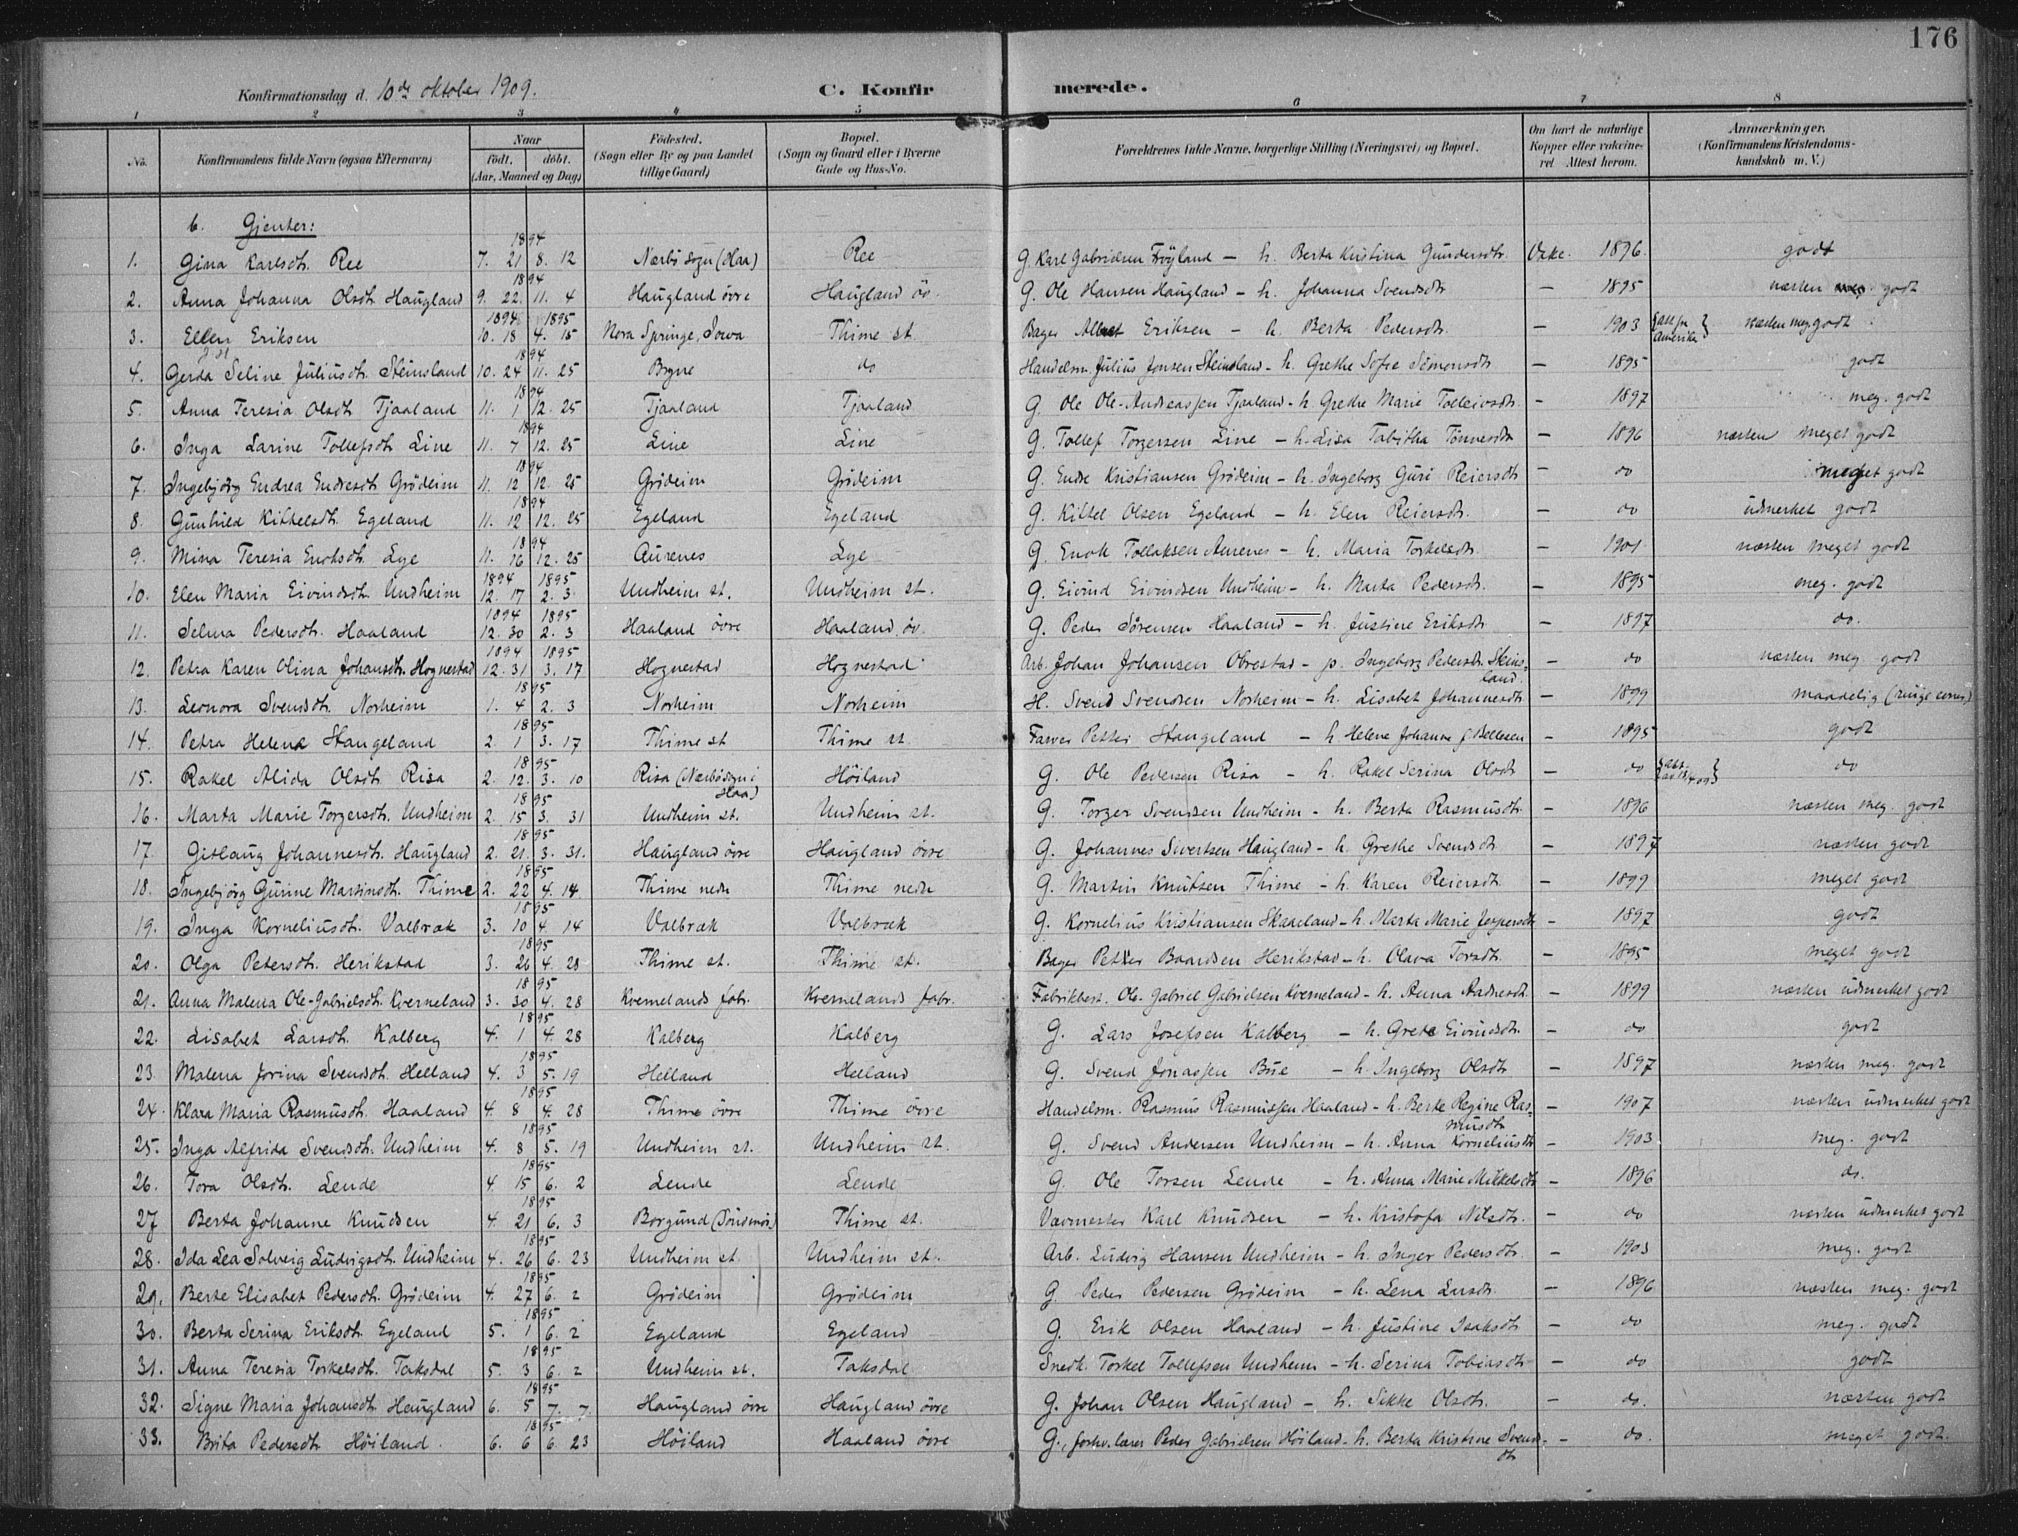 176
Konfirmationsdag d. 10de oktober 1909.
C. Konfirmerede.
1 2 3 4 5 6 7 8
No.
Konfirmandens fulde Navn (ogsaa Efternavn)
Naar
født. døbt.
(Aar, Maaned og Dag)
Fødested.
(Sogn eller By og paa Landet
tillige Gaard)
Bopæl.
(Sogn og Gaard eller i Byerne
Gade og Hus-No.
Forældrenes fulde Navne, borgerlige Stilling (Næringsvei) og Bopæl.
Om havt de naturlige
Kopper eller vakcine-
ret Attest herom.
Anmærkninger.
(Konfirmandens Kristendoms-
kundskab m. V.)
b. Gjenter:
1894
1. Gina Karlsdt. Ree 7. 21 8. 12 Nærbö sogn (Haa) Ree G. Karl Gabrielsen Fröyland – h. Berta Kristina Gundersdtr. Vakc. 1896 godt
1894
2. Anna Johanna Olsdt. Haugland 9. 22. 11. 4 Haugland övre Haugland öv. G. Ole Hansen Haugland – h. Johanna Svendsdtr – 1895 næsten godt
1894 1895
3. Ellen Eriksen 10. 18 4. 15 Nora Springe, Iowa Thime st. Bager Eriksen – h. Berta Pedersdtr. – 1903 {att. fr. Amerika} næsten meg. godt
1894
4. Gerda Seline Juliusdt. Steinsland 10. 24 11. 25 Bryne do Handelsm. Julius Jonsen Steinsland – h. Grethe Sofie Simonsdtr – 1895 godt
1894
5. Anna Teresia Olsdt. Tjaaland 11. 1 12. 25 Tjaaland Tjaaland G. Ole Ole-Andreassen Tjaaland – h. Grethe Marie Tolleivsdtr. – 1897 meg. godt
1894
6. Inga Larine Tollefsdt. Line 11. 7 12. 25 Line Line G. Tollef Torgersen Line – h. Lisa Tabitha Tönnesdtr – 1896 næsten meget godt
1894
7. Ingebjörg Endrea Endresdt. Grödeim 11. 12 12. 25 Grödeim Grödeim G. Endre Kristiansen Grödeim – h. Ingeborg Guri Reiersdtr – do meget godt
1894
8. Gunhild Kittelsdt. Egeland 11. 12 12. 25 Egeland Egeland G. Kittel Olsen Egeland – h. Elen Reiersdtr. – do udmerket godt
1894
9. Mina Teresia Enoksdt. Lye 11. 16 12. 25 Aurenes Lye G. Enok Tollaksen Aurenes – h. Maria Torkelsdtr. – 1901 næsten meget godt
1894 1895
10. Elen Maria Eivindsdt. Undheim 12. 17 2. 3 Undheim st. Undheim st. G. Eivind Eivindsen Undheim – h. Marta Pedersdtr. – 1895 meg. godt
1894 1895
11. Selma Pedersdt. Haaland 12. 30 2. 3 Haaland övre Haaland öv. G. Peder Sörensen Haaland – h. Justine Eriksdtr – 1897 do.
1894 1895
12. Petra Karen Olina Johansdt. Hognestad 12. 31 3. 17 Hognestad Hognestad Arb. Johan Johansen Obrestad – p. Ingeborg Pedersdtr. Skins-
land. – do næsten meg. godt
1895
13. Leonora Svendsdt. Norheim 1. 4 2. 3 Norheim Norheim H. Svend Svendsen Norheim – h. Lisabet Johannesdtr – 1899 maadelig
1895
14. Petra Helene Stangeland 2. 1 3. 17 Thime st Thime st. Farver Petter Stangeland – h. Helene Johanne f. Bellesen – 1895 godt
1895
15. Rakel Alida Olsdt. Risa 2. 12. 3. 10 Risa (Nærbö sogn i
Haa) Höiland G. Ole Pedersen Risa – h. Rakel Serina Olsdtr – do do
1895
16. Marta Marie Torgersdt. Undheim 2. 15 3. 31 Undheim st. Undheim st. G. Torger Svendsen Undheim – h. Berta Rasmusdtr. – 1896 næsten meg. godt
1895
17. Gitlaug Johannesdt. Haugland 2. 21. 3. 31. Haugland övre Haugland övre G. Johannes Sivertsen Haugland – h. Grethe Svendsdtr – 1897 næsten godt
1895
18. Ingebjörg Gurine Martinsdt. Thime 2. 22 4. 14 Thime nedr Thime nedr G. Martin Knutsen Thime – h. Karen Reiersdtr. – 1899 meget godt
1895
19. Inga Korneliusdt. Valbræk 3. 10 4. 14 Valbræk Valbræk G. Kornelius Kristiansen Skaaeland – h. Marta Marie Jespersdtr – 1897 godt
1895
20. Olga Petersdt. Herikstad 3. 26 4. 28 Thime st. Thime st. Bager Petter Baardsen Herikstad – h. Olava Torsdtr. – 1895 meget godt
1895
21. Anna Malena Ole-Gabrielsdt. Kverneland 3. 30 4. 28 Kvernelands fabr. Kvernelands fabr. Fabrikbest. Ole-Gabriel Gabrielsen Kverneland – h. Anna Aadnesdt. – 1899 næsten udmerket godt
1895
22. Lisabet Larsdt. Kalberg 4. 1 4. 28 Kalberg Kalberg G. Lars Josefsen Kalberg – h. Grete Eivindsdtr. – do godt
1895
23. Malena Jorina Svendsdt. Helland 4. 3 5. 19 Helland Helland G. Svend Jonassen Bue – h. Ingeborg Olsdtr. – 1897 næsten meg. godt
1895
24. Klara Maria Rasmusdt. Haaland 4. 8 4. 28 Thime övre Thime övre Handelsm. Rasmus Rasmussen Haaland – h. Berte Regine Ras-
musdtr – 1907 næsten udmerket godt
1895
25. Inga Alfrida Svendsdt. Undheim 4. 8 5. 19 Undheim st. Undheim st. G. Svend Andersen Undheim – h. Anna Korneliusdtr – 1903 meg. godt
1895
26. Tora Olsdt. Lende 4. 15 6. 2 Lende Lende G. Ole Torsen Lende – h. Anna Marie Mikkelsdtr – 1896 do.
1895
27 Berta Johanne Knudsen 4. 21 6. 3 Borgund (Söndmör) Thime st. Vævmester Karl Knudsen – h. Kristofa Nilsdtr. – do næsten udmerket godt
1895
28. Ida Lea Solveig Ludvigsdt. Undheim 4. 26 6. 23 Undheim st. Undheim st. Arb. Ludvig Hansen Undheim – h. Inger Pedersdtr. – 1903 meg. godt
1895
29. Berte Elisabet Pedersdt. Grödeim 4. 27 6. 2 Grödeim Grödeim G. Peder Pedersen Grödeim – h. Lena Larsdtr. – 1896 næsten meg. godt
1895
30. Berta Serina Eriksdt. Egeland 5. 1 6. 2 Egeland Egeland G. Erik Olsen Haaland – h. Justine Isaksdtr – do meg. godt
1895
31. Anna Teresia Torkelsdt. Taksdal 5. 3 6. 2 Undheim st. Taksdal Snedk. Torkel Tollefsen Undheim – h. Serina Tobiasdtr – do godt
1895
32. Signe Maria Johansdt. Haugland 6. 5 7. 7. Haugland övre Haugland övre G. Johan Olsen Haugland – h. Sikke Olsdtr. – do. næsten godt
1895
33. Brita Pedersdt. Höiland. 6. 6 6. 23 Höiland Haaland övre G., forhv. lærer Peder Gabrielsen Höiland – h. Berta Kristine Svends-
dtr – do. meget godt.